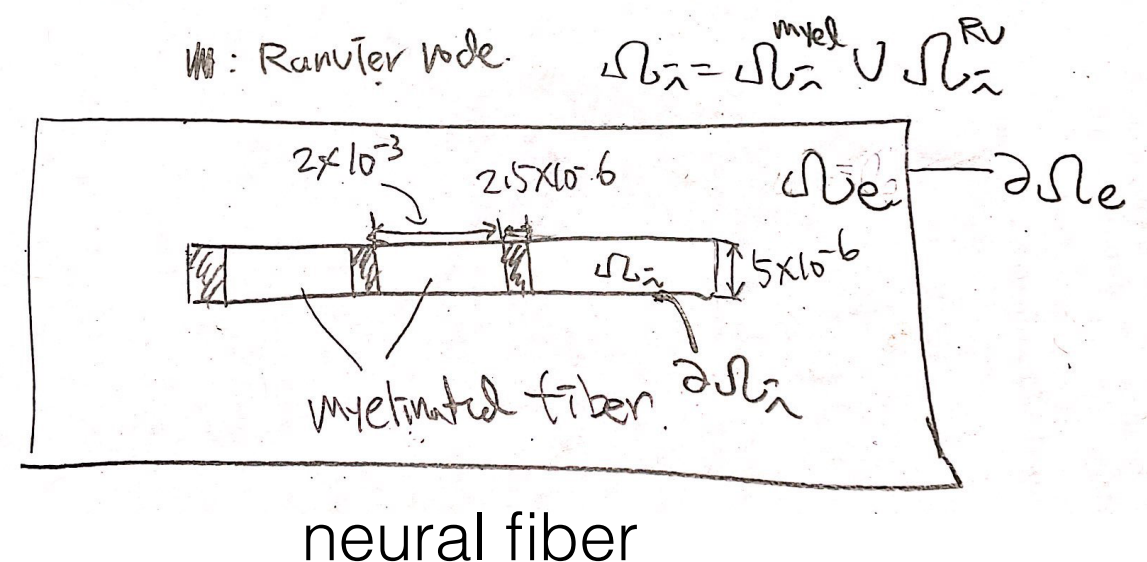 : Ranvier node. Ωi = Ωi^myel ∪ Ωi^RN
2×10^-3
2.5×10^-6
Ωe
∂Ωe
Ωi
5×10^-6
∂Ωi
myelinated fiber.
neural fiber